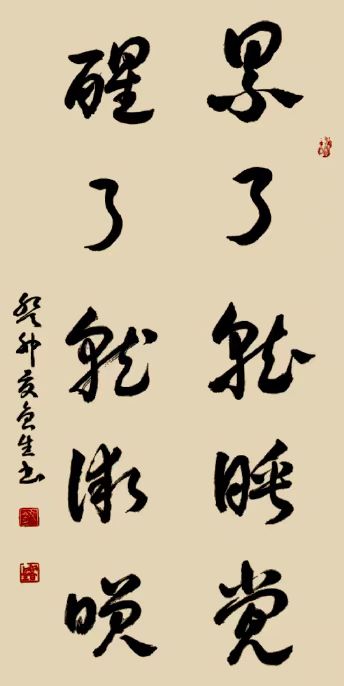 累了就睡觉
醒了就微咲
癸卯夏生书